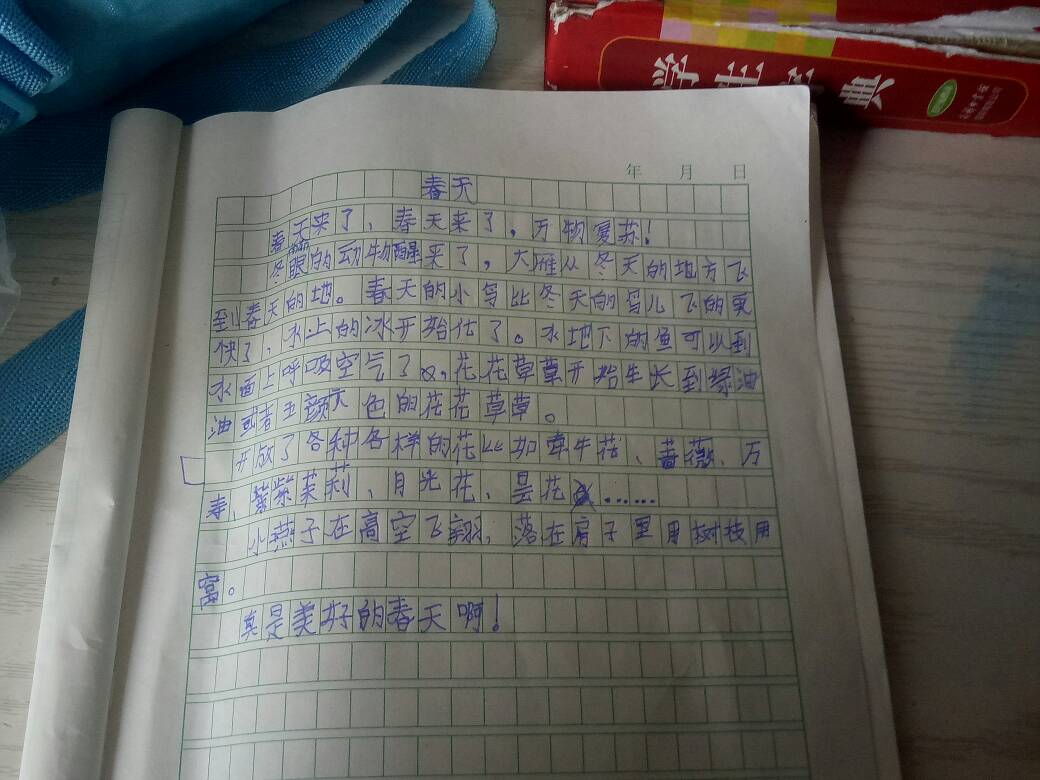 学生字典
年 月 日
春天
春天来了，春天来了，万物复苏！
冬眠的动物醒来了，大雁从冬天的地方飞
到春天的地。春天的小鸟比冬天的鸟儿飞的更
快了，水上的冰开始化了。水地下的鱼可以到
水面上呼吸空气了。花花草草开始生长到绿油
油或者五颜六色的花花草草。
开放了各种各样的花比如牵牛花、蔷薇、万
寿、紫茉莉、月光花、昙花……
小燕子在高空飞翔，落在房子里用树枝用
窝。
真是美好的春天啊！